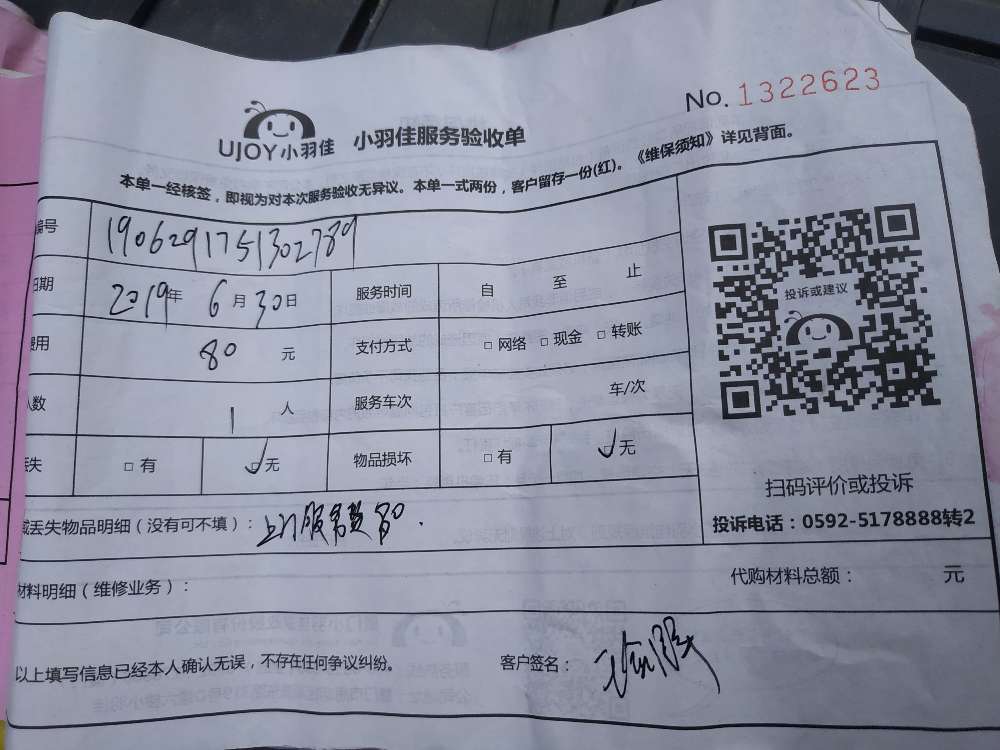 No. 1322623
UJOY小羽佳 小羽佳服务验收单
本单一经核签，即视为对本次服务验收无异议。本单一式两份，客户留存一份(红)。《维保须知》详见背面。
编号 1906291751302789
日期 2019年 6月30日 服务时间 自 至 止
费用 80 元 支付方式 □网络 □现金 □转账
人数 1 人 服务车次 车/次
丢失 □有 ☑无 物品损坏 □有 ☑无
投诉或建议
扫码评价或投诉
投诉电话：0592-5178888转2
或丢失物品明细（没有可不填）：上门服务费80.
材料明细（维修业务）： 代购材料总额： 元
以上填写信息已经本人确认无误，不存在任何争议纠纷。 客户签名：